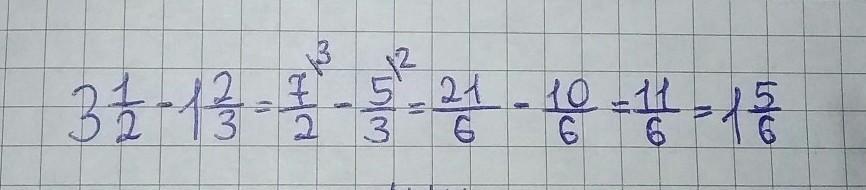 3 1/2 - 1 2/3 = 7\3/2 - 5\2/3 = 21/6 - 10/6 = 11/6 = 1 5/6